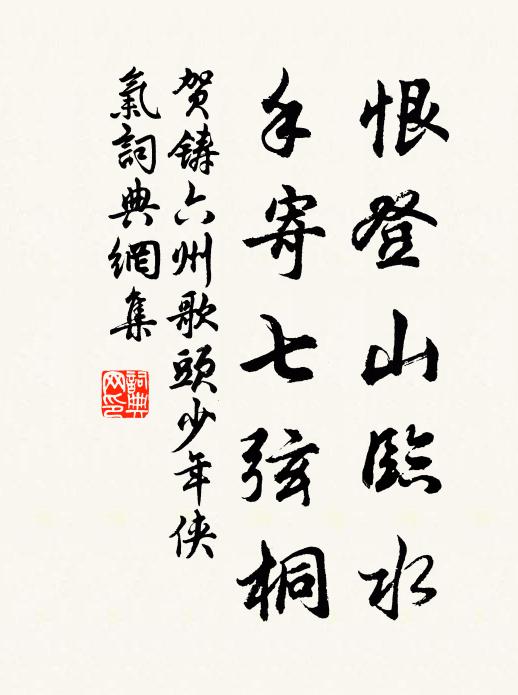 恨登山臨水
手寄七弦桐
贺鑄六州歌頭少年侠
氣詞典網集
詞典网印